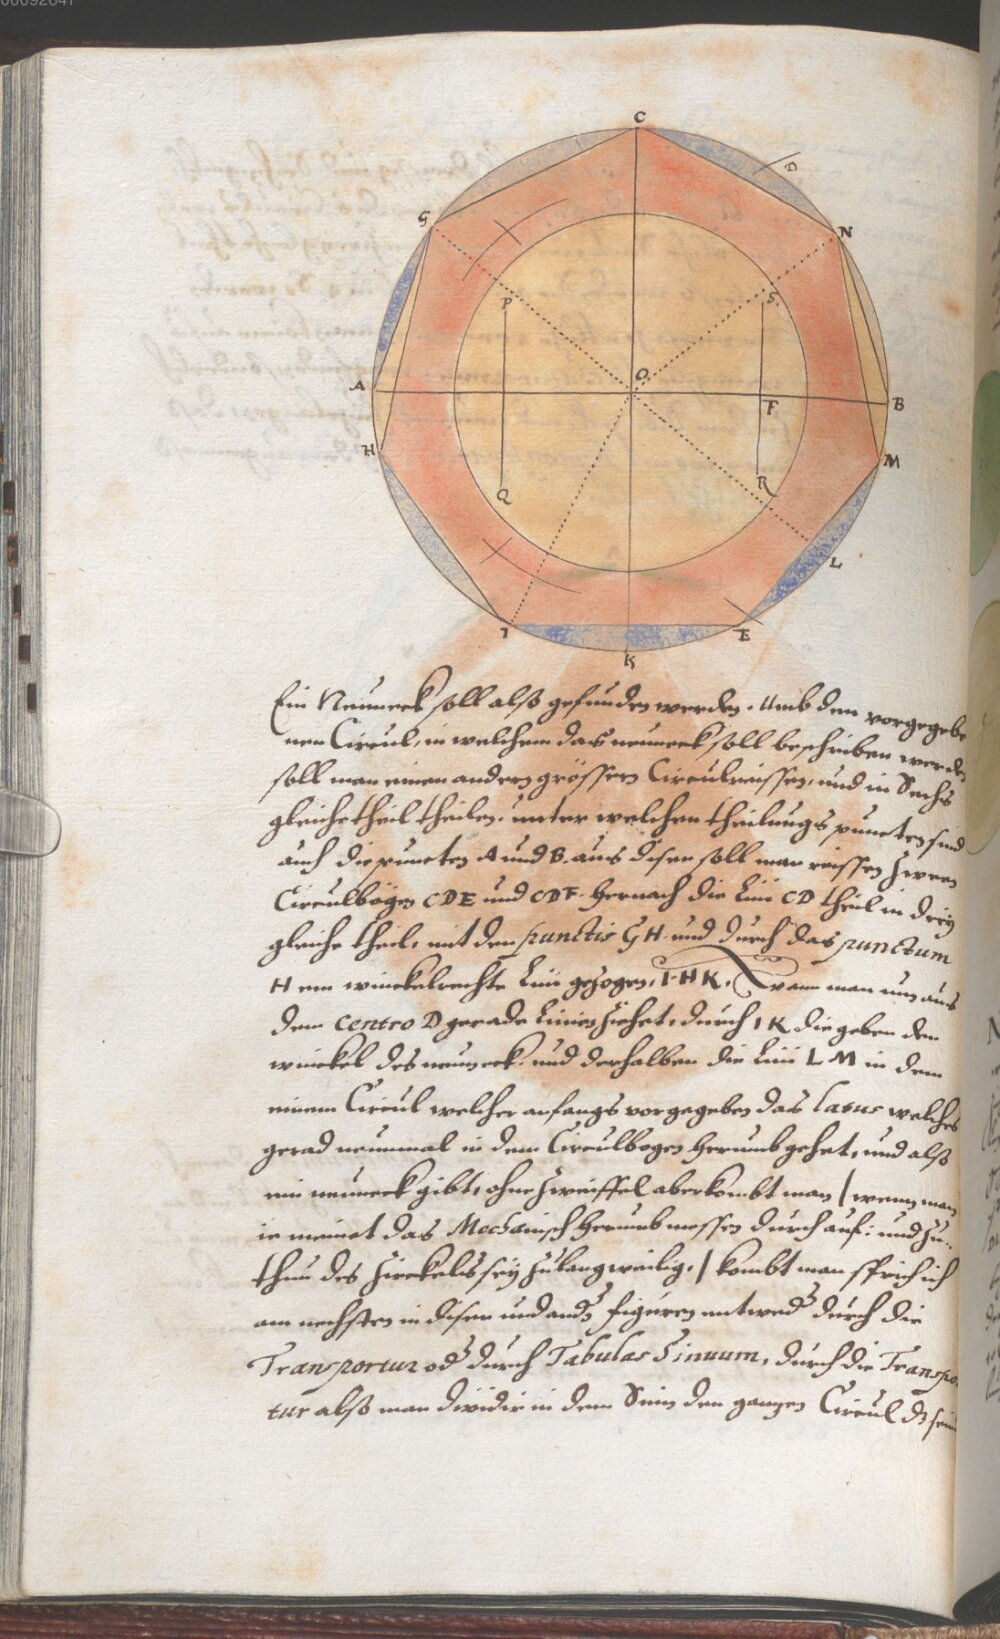 C
D
G
N
P
S.
O
A
F
B
H
M
Q
R
L
I
E
K
Ein Neuneck soll alß gefunden werden. Umb den vorgegebe
nen Circul, in welchem das neuneck soll beschriben werden
soll man einen andern grössern Circul reissen, und in Sechs
gleiche theil theilen. unter welchen theilungs puncten sind
auch die puncten A und B. aus disen soll man reissen zween
Circulbögen CDE und CDF. hernach die Lini CD theil in drey
gleiche theil, mit den punctis G H. und durch das punctum
H ein winckelrechte Lini gezogen, I H K, wann man nun aus
dem Centro D gerade Linien ziehet, durch I K die geben den
winckel des neuneck. und derhalben die Lini L M in dem
einem Circul welcher anfangs vorgegeben das Latus welches
gerad neunmal in dem Circulbogen herumb gehet, und alß
ein neuneck gibt, ohne zweiffel aber kombt man / wenn man
ie meinet das Mechanisch herumb messen durch auf: und zu:
thun des Zirckels sey zu langweilig, / kombt man sprich ich
am nechsten in disen und and. figuren entwed. durch die
Transportur od. durch Tabulas Sinuum, durch die Transpo
tur alß man dividir in dem Sinn den ganzen Circul